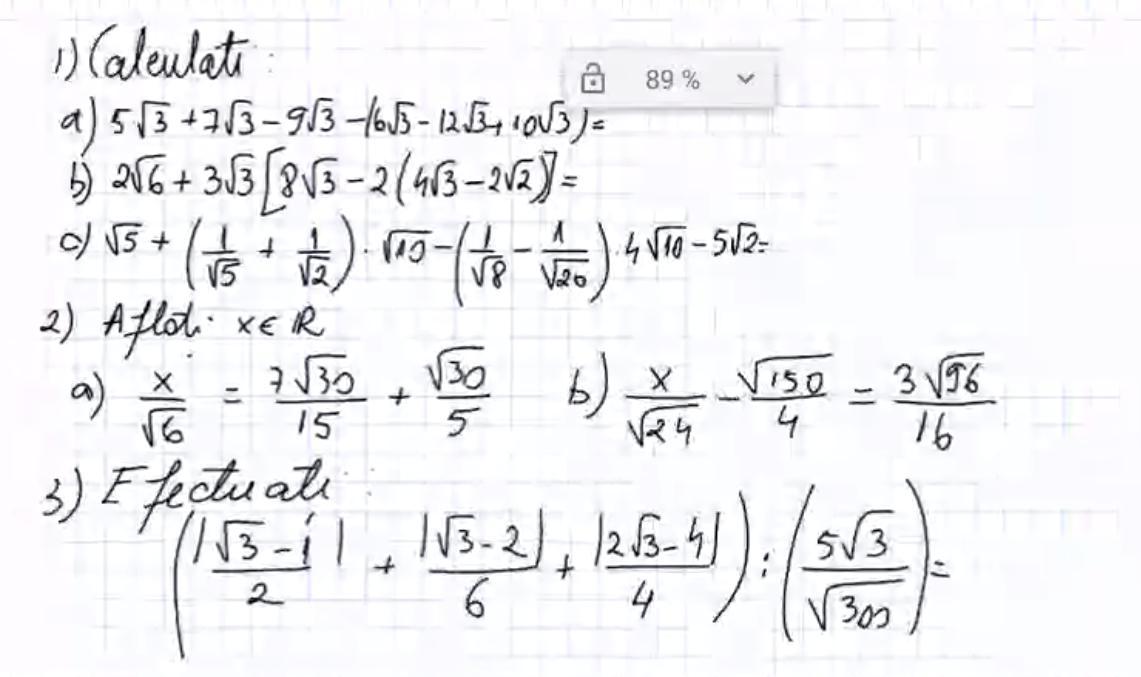 1) Calculati:
89 %
a) 5√3 + 7√3 - 9√3 - (6√3 - 12√3 + 10√3) =
b) 2√6 + 3√3 [8√3 - 2(4√3 - 2√2)] =
c) √5 + (1/√5 + 1/√2) · √10 - (1/√8 - 1/√20) · 4√10 - 5√2 =
2) Aflati x ∈ R
a) x/√6 = 7√30/15 + √30/5 b) x/√24 - √150/4 = 3√96/16
3) Efectuati:
(|√3 - 1|/2 + |√3 - 2|/6 + |2√3 - 4|/4) : (5√3/√300) =